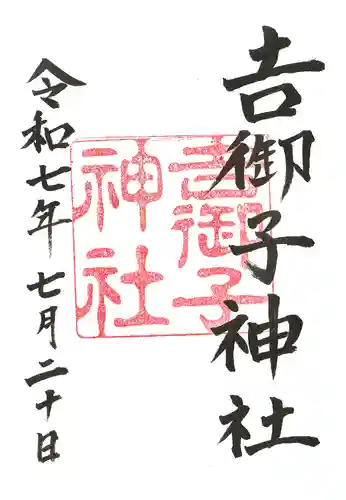 吉御子神社
吉御子
神社
令和七年 七月二十日